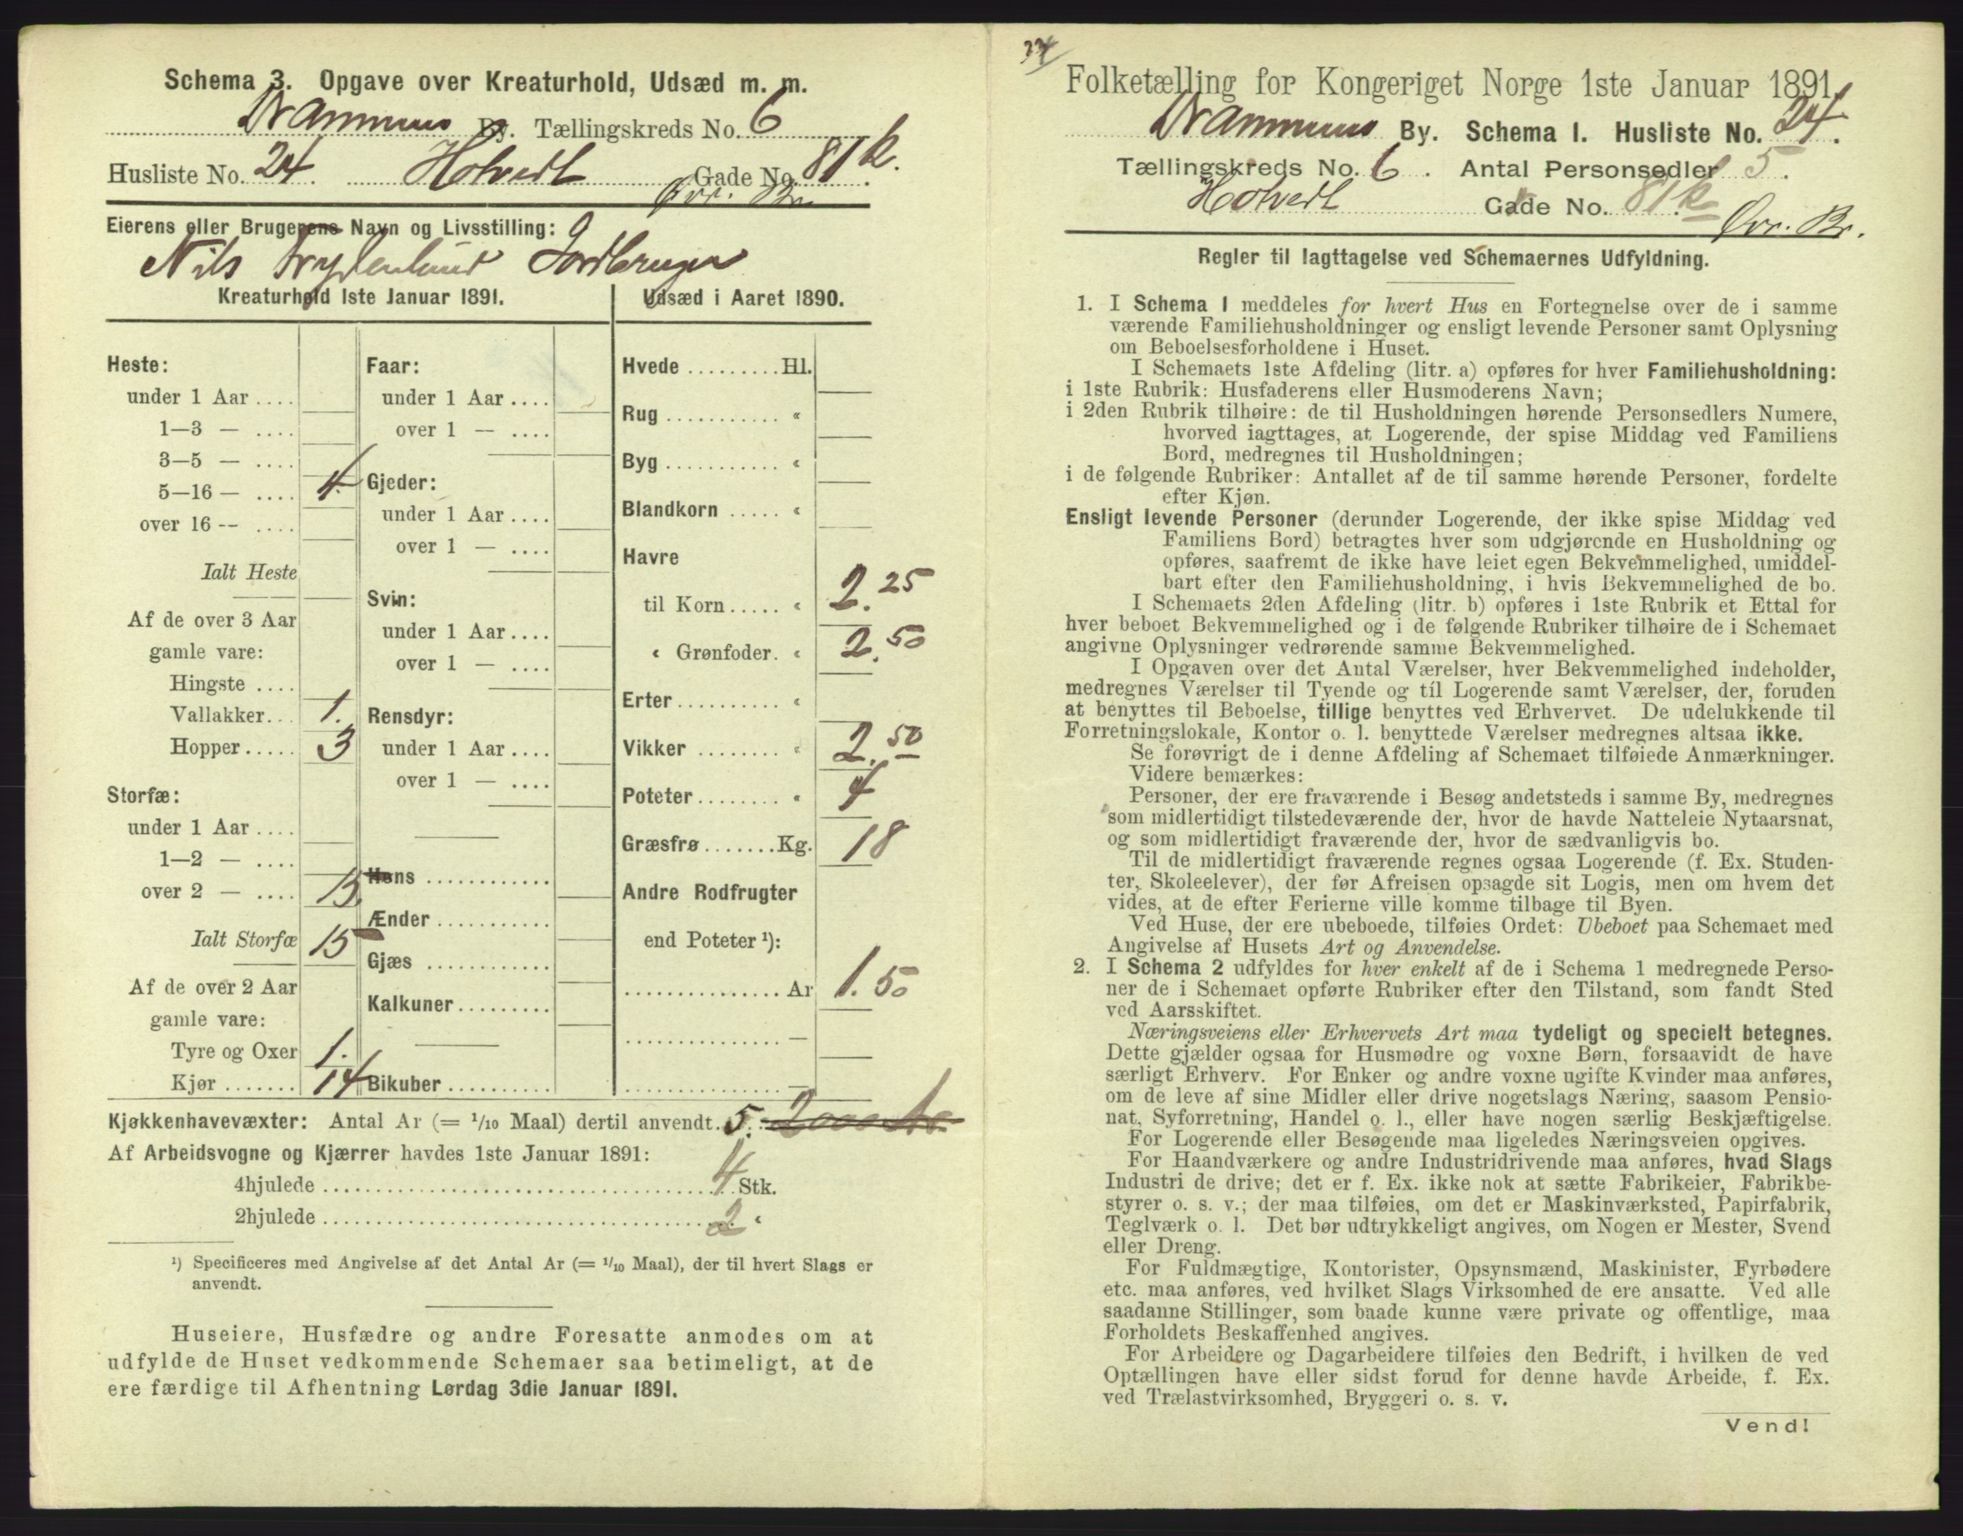 Schema 3. Opgave over Kreaturhold, Udsæd m. m.
Drammens By. Tællingskreds No. 6
Husliste No. 24. Hotvedt Gade No. 81 k.
Øvr. Br.
Eierens eller Brugerens Navn og Livsstilling:
Nils Frydenlund Jordbruger
Kreaturhold 1ste Januar 1891.
Heste:
under 1 Aar ....
1—3 — ....
3—5 — ....
5—16 — .... 4.
over 16 -- ....
Ialt Heste
Af de over 3 Aar
gamle vare:
Hingste ....
Vallakker... 1.
Hopper ..... 3
Storfæ:
under 1 Aar ....
1—2 — ....
over 2 — .... 15.
Ialt Storfæ 15
Af de over 2 Aar
gamle vare:
Tyre og Oxer 1.
Kjør ....... 14
Faar:
under 1 Aar ....
over 1 — ....
Gjeder:
under 1 Aar ....
over 1 — ....
Svin:
under 1 Aar ....
over 1 — ....
Rensdyr:
under 1 Aar ....
over 1 — ....
Høns ............
Ænder ...........
Gjæs ............
Kalkuner .........
Bikuber ..........
Udsæd i Aaret 1890.
Hvede ......... Hl.
Rug ........... «
Byg ........... «
Blandkorn ..... «
Havre
til Korn ..... « 2.25
« Grønfoder. « 2.50
Erter .......... «
Vikker ........ « 2.50
Poteter ........ « 4
Græsfrø ....... Kg. 18
Andre Rodfrugter
end Poteter ¹):
............... Ar 1.50
............... —
............... —
Kjøkkenhavevæxter: Antal Ar (= 1/10 Maal) dertil anvendt. 5. 2000 Ar.
Af Arbeidsvogne og Kjærrer havdes 1ste Januar 1891:
4hjulede .................................... 4 Stk.
2hjulede .................................... 2 «
¹) Specificeres med Angivelse af det Antal Ar (= 1/10 Maal), der til hvert Slags er
anvendt.
Huseiere, Husfædre og andre Foresatte anmodes om at
udfylde de Huset vedkommende Schemaer saa betimeligt, at de
ere færdige til Afhentning Lørdag 3die Januar 1891.
Folketælling for Kongeriget Norge 1ste Januar 1891.
Drammens By. Schema 1. Husliste No. 24.
Tællingskreds No. 6. Antal Personsedler 5.
Hotvedt Gade No. 81 k
Øvr. Br.
Regler til Iagttagelse ved Schemaernes Udfyldning.
1. I Schema 1 meddeles for hvert Hus en Fortegnelse over de i samme
værende Familiehusholdninger og ensligt levende Personer samt Oplysning
om Beboelsesforholdene i Huset.
I Schemaets 1ste Afdeling (litr. a) opføres for hver Familiehusholdning:
i 1ste Rubrik: Husfaderens eller Husmoderens Navn;
i 2den Rubrik tilhøire: de til Husholdningen hørende Personsedlers Numere,
hvorved iagttages, at Logerende, der spise Middag ved Familiens
Bord, medregnes til Husholdningen;
i de følgende Rubriker: Antallet af de til samme hørende Personer, fordelte
efter Kjøn.
Ensligt levende Personer (derunder Logerende, der ikke spise Middag ved
Familiens Bord) betragtes hver som udgjørende en Husholdning og
opføres, saafremt de ikke have leiet egen Bekvemmelighed, umiddel-
bart efter den Familiehusholdning, i hvis Bekvemmelighed de bo.
I Schemaets 2den Afdeling (litr. b) opføres i 1ste Rubrik et Ettal for
hver beboet Bekvemmelighed og i de følgende Rubriker tilhøire de i Schemaet
angivne Oplysninger vedrørende samme Bekvemmelighed.
I Opgaven over det Antal Værelser, hver Bekvemmelighed indeholder,
medregnes Værelser til Tyende og til Logerende samt Værelser, der, foruden
at benyttes til Beboelse, tillige benyttes ved Erhvervet. De udelukkende til
Forretningslokale, Kontor o. l. benyttede Værelser medregnes altsaa ikke.
Se forøvrigt de i denne Afdeling af Schemaet tilføiede Anmærkninger.
Videre bemærkes:
Personer, der ere fraværende i Besøg andetsteds i samme By, medregnes
som midlertidigt tilstedeværende der, hvor de havde Natteleie Nytaarsnat,
og som midlertidigt fraværende der, hvor de sædvanligvis bo.
Til de midlertidigt fraværende regnes ogsaa Logerende (f. Ex. Studen-
ter, Skoleelever), der før Afreisen opsagde sit Logis, men om hvem det
vides, at de efter Ferierne ville komme tilbage til Byen.
Ved Huse, der ere ubeboede, tilføies Ordet: Ubeboet paa Schemaet med
Angivelse af Husets Art og Anvendelse.
2. I Schema 2 udfyldes for hver enkelt af de i Schema 1 medregnede Perso-
ner de i Schemaet opførte Rubriker efter den Tilstand, som fandt Sted
ved Aarsskiftet.
Næringsveiens eller Erhvervets Art maa tydeligt og specielt betegnes.
Dette gjælder ogsaa for Husmødre og voxne Børn, forsaavidt de have
særligt Erhverv. For Enker og andre voxne ugifte Kvinder maa anføres,
om de leve af sine Midler eller drive nogetslags Næring, saasom Pensio-
nat, Syforretning, Handel o. l., eller have nogen særlig Beskjæftigelse.
For Logerende eller Besøgende maa ligeledes Næringsveien opgives.
For Haandværkere og andre Industridrivende maa anføres, hvad Slags
Industri de drive; det er f. Ex. ikke nok at sætte Fabrikeier, Fabrikbe-
styrer o. s. v.; der maa tilføies, om det er Maskinværksted, Papirfabrik,
Teglværk o. l. Det bør udtrykkeligt angives, om Nogen er Mester, Svend
eller Dreng.
For Fuldmægtige, Kontorister, Opsynsmænd, Maskinister, Fyrbødere
etc. maa anføres, ved hvilket Slags Virksomhed de ere ansatte. Ved alle
saadanne Stillinger, som baade kunne være private og offentlige, maa
Forholdets Beskaffenhed angives.
For Arbeidere og Dagarbeidere tilføies den Bedrift, i hvilken de ved
Optællingen have eller sidst forud for denne havde Arbeide, f. Ex.
ved Trælastvirksomhed, Bryggeri o. s. v.
Vend!